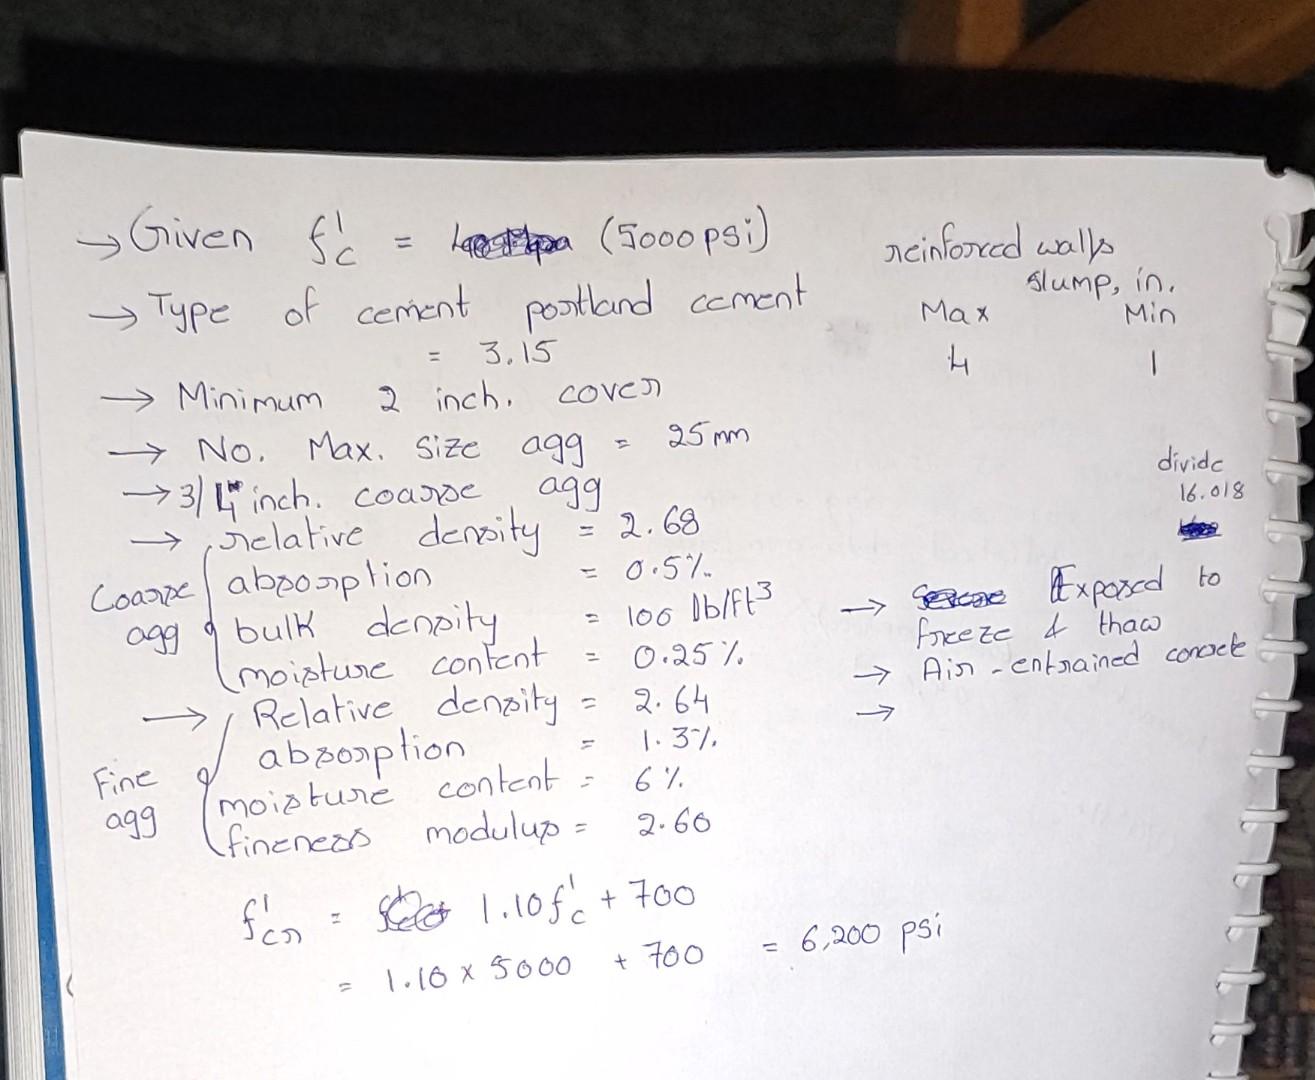 → Given f'c = (5000 psi)
→ Type of cement portland cement
= 3.15
→ Minimum 2 inch. cover
→ No. Max. size agg = 25 mm
→ 3/4 inch. coarse agg
→ relative density = 2.68
absorption = 0.5%
bulk density = 100 lb/ft³
moisture content = 0.25%
Coarse
agg
→ Relative density = 2.64
absorption = 1.3%
moisture content = 6%
fineness modulus = 2.60
Fine
agg
f'cr = 1.10 f'c + 700
= 1.10 x 5000 + 700 = 6,200 psi
reinforced walls
slump, in.
Max Min
4 1
divide
16.018
→ Exposed to
freeze & thaw
→ Air-entrained concrete
→